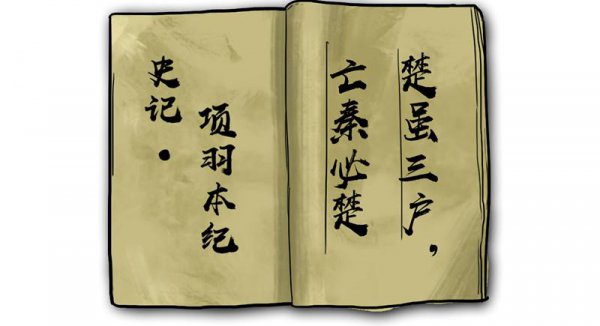 楚虽三户，
亡秦必楚
史记·
项羽本纪